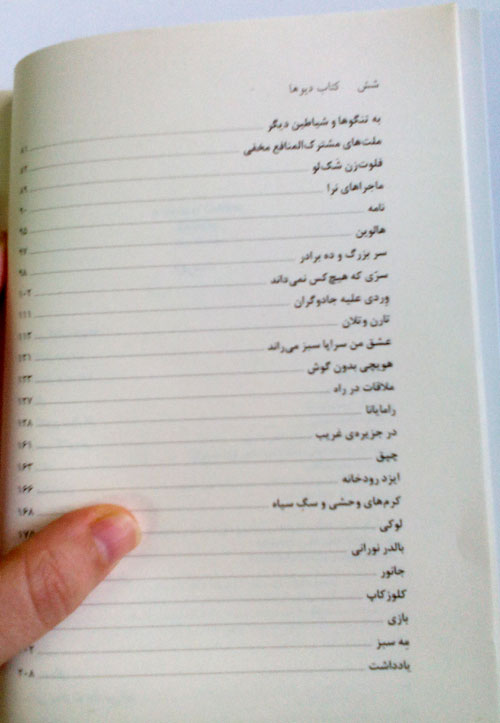 شش کتاب دیوها
به تنگوها و شیاطین دیگر ۸۱
ملت‌های مشترک‌المنافع مخفی ۸۲
فلوت‌زن شک‌لو ۸۹
ماجراهای نرا ۹۰
نامه ۹۵
هالوین ۹۷
سر بزرگ و ده برادر ۹۸
سرّی که هیچ‌کس نمی‌داند ۱۰۲
وِردی علیه جادوگران ۱۱۱
تارن وتلان ۱۱۳
عشق من سراپا سبز می‌راند ۱۳۱
هویجی بدون گوش ۱۳۳
ملاقات در راه ۱۳۷
رامایانا ۱۳۸
در جزیره‌ی غریب ۱۶۱
چپق ۱۶۳
ایزد رودخانه ۱۶۶
کرم‌های وحشی و سگِ سیاه ۱۶۸
لوکی ۱۷۸
بالدر نورانی
جانور
کلوزکاپ
بازی
مِه سبز
یادداشت ۲۰۸